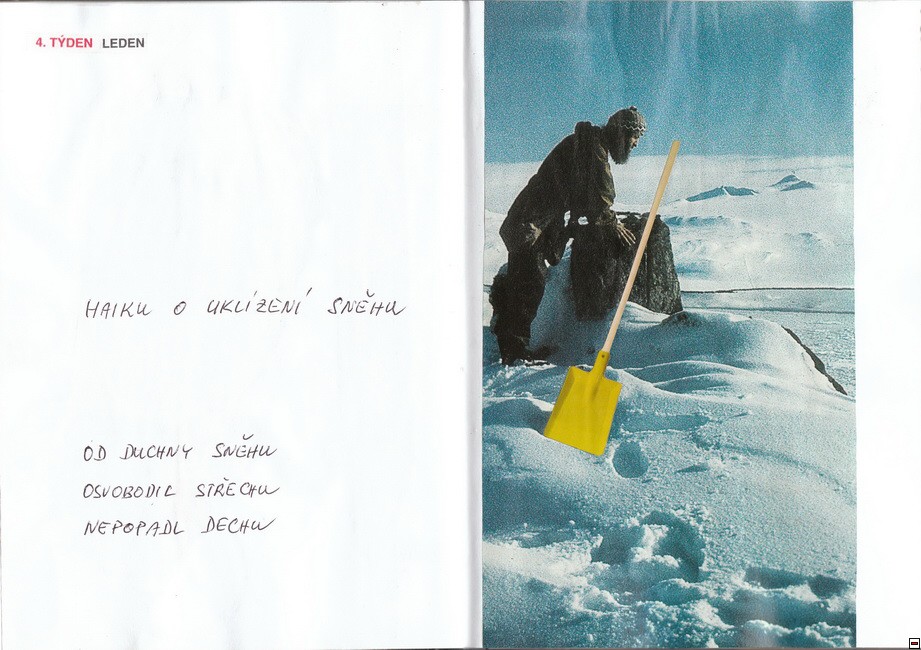 4. TÝDEN LEDEN
HAIKU O UKLÍZENÍ SNĚHU
OD DUCHNY SNĚHU
OSVOBODIL STŘECHU
NEPOPADL DECHU